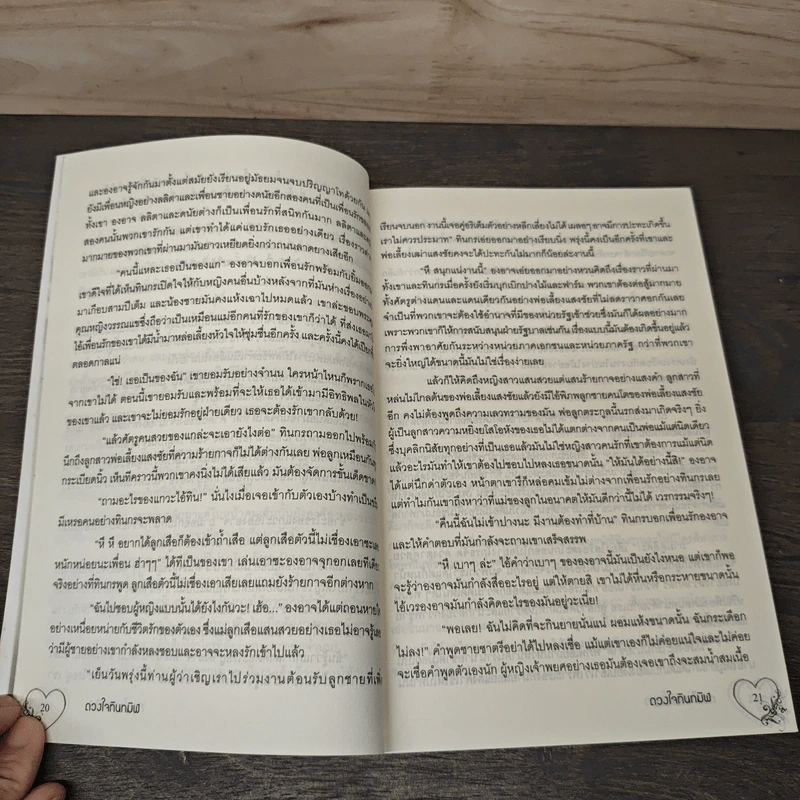 และองอาจรู้จักกันมาตั้งแต่สมัยยังเรียนอยู่มัธยมจนจบปริญญาโทด้วยกัน
ยังมีเพื่อนหญิงอย่างลลิตาและเพื่อนชายอย่างดนัยอีกสองคนที่เป็นเพื่อนรัก
ทั้งเขา องอาจ ลลิตาและดนัยต่างก็เป็นเพื่อนรักที่สนิทกันมาก ลลิตาและ
สองคนนั้นพวกเขารักกัน แต่เขาทำได้แค่แอบรักเธออย่างเดียว เรื่องราว
มากมายของพวกเขาที่ผ่านมามันยาวเหยียดยิ่งกว่าถนนลาดยางเสียอีก
"คนนี้แหละเธอเป็นของแก" องอาจบอกเพื่อนรักพร้อมกับยิ้มออก
เขาดีใจที่ได้เห็นทินกรเปิดใจให้กับหญิงคนอื่นบ้างหลังจากที่มันห่างเรื่อง
มาเกือบสามปีเต็ม และน้องชายมันคงแห้งเฉาไปหมดแล้ว เขาล่ะชอบพระ
คุณหญิงวรรณแขซึ่งถือว่าเป็นเหมือนแม่อีกคนที่รักของเขาก็ว่าได้ ที่ส่งเธอ
ไอ้เพื่อนรักของเขาได้มีน้ำมาหล่อเลี้ยงหัวใจให้ชุ่มชื่นอีกครั้ง และครั้งนี้คงได้เปียก
ตลอดกาลแน่
"ใช่! เธอเป็นของฉัน" เขายอมรับอย่างจำนน ใครหน้าไหนก็พราก
จากเขาไม่ได้ ตอนนี้เขายอมรับและพร้อมที่จะให้เธอได้เข้ามามีอิทธิพลใน
ของเขาแล้ว และเขาจะไม่ยอมรักอยู่ฝ่ายเดียว เธอจะต้องรักเขากลับด้วย!
"แล้วศัตรูคนสวยของแกล่ะจะเอายังไงต่อ" ทินกรถามออกไปพร้อม
นึกถึงลูกสาวพ่อเลี้ยงแสงชัยที่ความร้ายกาจก็ไม่ได้ต่างกันเลย พ่อลูกเหมือนกัน
กระเบียดนิ้ว เห็นทีคราวนี้พวกเขาคงนิ่งไม่ได้เสียแล้ว มันต้องจัดการขั้นเด็ดขาด
"ถามอะไรของแกวะไอ้ทิน!" นั่นไงเมื่อเจอเข้ากับตัวเองบ้างทำเป็น
มีเหรอคนอย่างทินกรจะพลาด
"หึ หึ อยากได้ลูกเสือก็ต้องเข้าถ้ำเสือ แต่ลูกเสือตัวนี้ไม่เชื่องเอาซะ
หนักหน่อยนะเพื่อน ฮ่าๆๆ" ได้ทีเป็นของเขา เล่นเอาซะองอาจจุกอกเลยทีเดียว
จริงอย่างที่ทินกรพูด ลูกเสือตัวนี้ไม่เชื่องเอาเสียเลยแถมยังร้ายกาจอีกต่างหาก
"ฉันไปชอบผู้หญิงแบบนั้นได้ยังไงกันวะ! เฮ้อ..." องอาจได้แต่ถอนหายใจ
อย่างเหนื่อยหน่ายกับชีวิตรักของตัวเอง ซึ่งแม่ลูกเสือแสนสวยอย่างเธอไม่อาจรู้
ว่ามีผู้ชายอย่างเขากำลังหลงชอบและอาจจะหลงรักเข้าไปแล้ว
"เย็นวันพรุ่งนี้ท่านผู้ว่าเชิญเราไปร่วมงานต้อนรับลูกชายที่
20
ดวงใจทินกมิฬ
เรียนจบนอก งานนี้เจอคู่อริเดิมตัวอย่างหลีกเลี่ยงไม่ได้ เผลอๆ อาจมีการปะทะเกิดขึ้น
เราไม่ควรประมาท" ทินกรเอ่ยออกมาอย่างเรียบนิ่ง พรุ่งนี้คงเป็นอีกครั้งที่เขาและ
พ่อเลี้ยงเฒ่าแสงชัยคงจะได้ปะทะกันไม่มากก็น้อยล่ะงานนี้
"หึ สนุกแน่งานนี้" องอาจเอ่ยออกมาอย่างหวนคิดถึงเรื่องราวที่ผ่านมา
ทั้งเขาและทินกรเมื่อครั้งยังเริ่มบุกเบิกปางไม้และฟาร์ม พวกเขาต้องต่อสู้มามาก
ทั้งศัตรูต่างแดนและแดนเดียวกันอย่างพ่อเลี้ยงแสงชัยที่ไม่ลดราวาศอกกันเลย
จำเป็นที่พวกเขาจะต้องใช้อำนาจที่มีของหน่วยรัฐเข้าช่วยซึ่งมันก็ได้ผลอย่างมาก
เพราะพวกเขาก็ให้การสนับสนุนฝ่ายรัฐบาลเช่นกัน เรื่องแบบนี้มันต้องเกิดขึ้นอยู่แล้ว
การพึ่งพาอาศัยกันระหว่างหน่วยภาคเอกชนและหน่วยภาครัฐ กว่าที่พวกเขา
จะยิ่งใหญ่ได้ขนาดนี้มันไม่ใช่เรื่องง่ายเลย
แล้วก็ให้คิดถึงหญิงสาวแสนสวยแต่แสนร้ายกาจอย่างแสงคำ ลูกสาวที่
หล่นไม่ไกลต้นของพ่อเลี้ยงแสงชัยแล้วยังมีไอ้พิภพลูกชายคนโตของพ่อเลี้ยงแสงชัย
อีก คงไม่ต้องพูดถึงความเลวทรามของมัน พ่อลูกตระกูลนี้นรกส่งมาเกิดจริงๆ ยิ่ง
ผู้เป็นลูกสาวความหยิ่งยโสโอหังของเธอไม่ได้แตกต่างจากคนเป็นพ่อแม้แต่นิดเดียว
ซึ่งบุคลิกนิสัยทุกอย่างที่เป็นเธอแล้วมันไม่ใช่หญิงสาวคนรักที่เขาต้องการแม้แต่นิด
แล้วอะไรมันทำให้เขาต้องไปชอบไปหลงเธอขนาดนั้น "ให้มันได้อย่างนี้สิ!" องอาจ
ได้แต่นึกด่าตัวเอง หน้าตาเขารึก็หล่อคมเข้มไม่ต่างจากเพื่อนรักอย่างทินกรเลย
แต่ทำไมกันเขาถึงหาว่าที่แม่ของลูกในอนาคตให้มันดีกว่านี้ไม่ได้ เวรกรรมจริงๆ!
"คืนนี้ฉันไม่เข้าปางนะ มีงานต้องทำที่บ้าน" ทินกรบอกเพื่อนรักองอาจ
และให้คำตอบที่มันกำลังจะถามเขาเสร็จสรรพ
"หึ เบาๆ ล่ะ" ไอ้คำว่าเบาๆ ขององอาจนี้มันเป็นยังไงหนอ แต่เขาก็พอ
จะรู้ว่าองอาจมันกำลังสื่ออะไรอยู่ แต่ให้ตายสิ เขาไม่ได้หื่นหรือกระหายขนาดนั้น
ไอ้เวรองอาจมันกำลังคิดอะไรของมันอยู่วะเนี่ย!
"พอเลย! ฉันไม่คิดที่จะกินยายนั่นแน่ ผอมแห้งขนาดนั้น ฉันกระเดือก
ไม่ลง!" คำพูดชายชาตรีอย่าได้ไปหลงเชื่อ แม้แต่เขาเองก็ไม่ค่อยแน่ใจและไม่ค่อย
จะเชื่อคำพูดตัวเองนัก ผู้หญิงเจ้าพยศอย่างเธอมันต้องเจอเขาถึงจะสมน้ำสมเนื้อ
ดวงใจทินกมิฬ
21